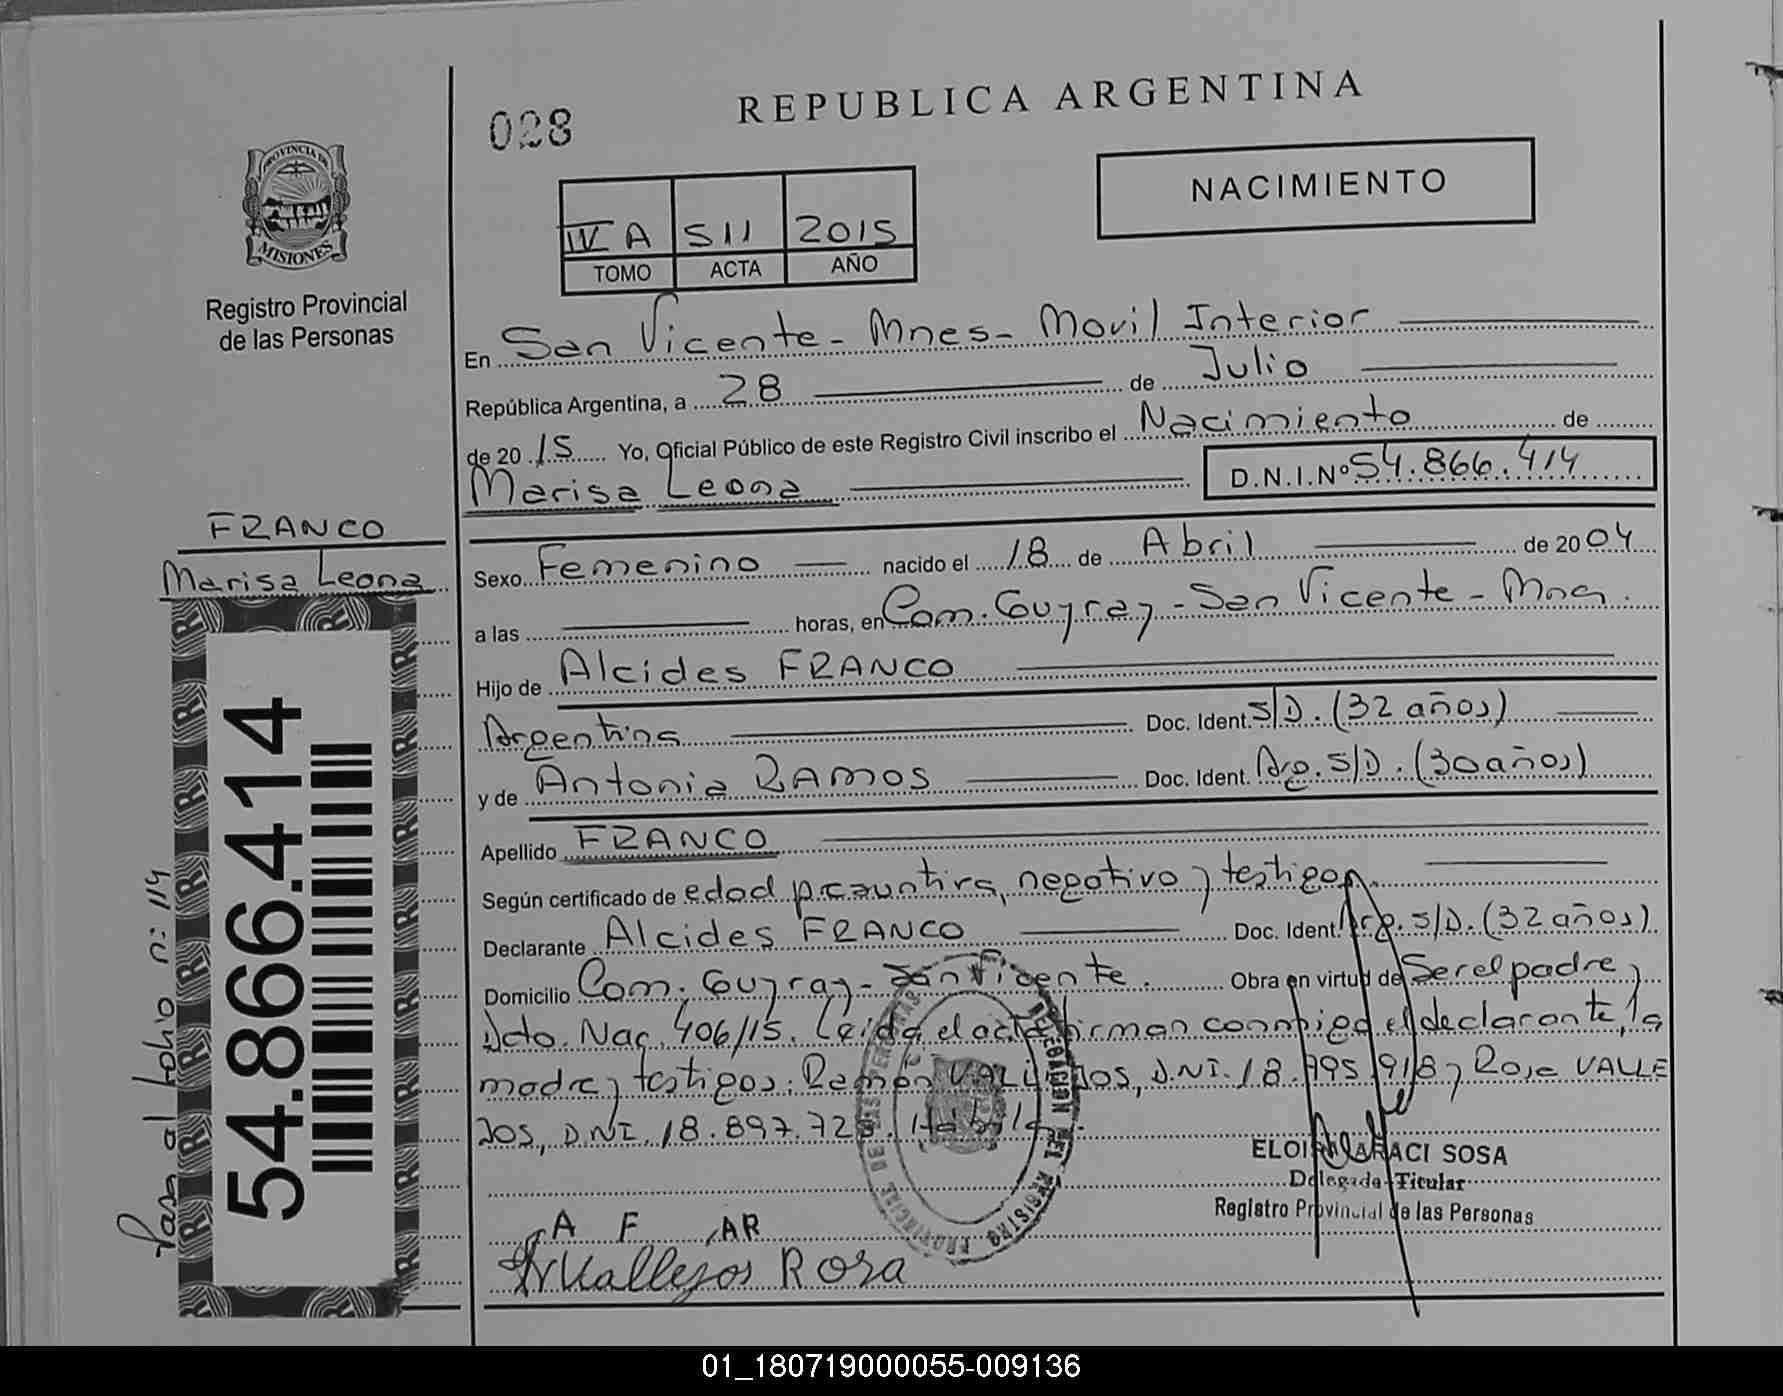 028
REPUBLICA ARGENTINA
NACIMIENTO
IV A 511 2015
TOMO ACTA AÑO
PROVINCIA DE
MISIONES
Registro Provincial
de las Personas
En San Vicente - Mnes - Movil Interior
República Argentina, a 28 de Julio
de 20 15 Yo, Oficial Público de este Registro Civil inscribo el Nacimiento de
Marisa Leona D.N.I.Nº 54.866.414
FRANCO
Marisa Leona
Sexo Femenino nacido el 18 de Abril de 20 04
a las horas, en Com. Guyray - San Vicente - Mnes.
Hijo de Alcides FRANCO
Argentina Doc. Ident. S/D. (32 años)
y de Antonia RAMOS Doc. Ident. Arg. S/D. (30 años)
Apellido FRANCO
Según certificado de edad presuntiva, negativo y testigos.
Declarante Alcides FRANCO Doc. Ident. Arg. S/D. (32 años)
Domicilio Com. Guyray - San Vicente. Obra en virtud de Ser el padre y
Dcto. Nac. 406/15. Leida el acta firman conmigo el declarante, la
madre y testigos: Ramón VALLEJOS, D.N.I. 18.795.918 y Rosa VALLE
JOS, D.N.I. 18.897.72
54.866.414
Pasa al folio n: 114
DELEGACION DEL REGISTRO PROVINCIAL DE LAS PERSONAS
ELOI ARACI SOSA
Delegada Titular
Registro Provincial de las Personas
A F AR
Vallejos Rosa
01_180719000055-009136